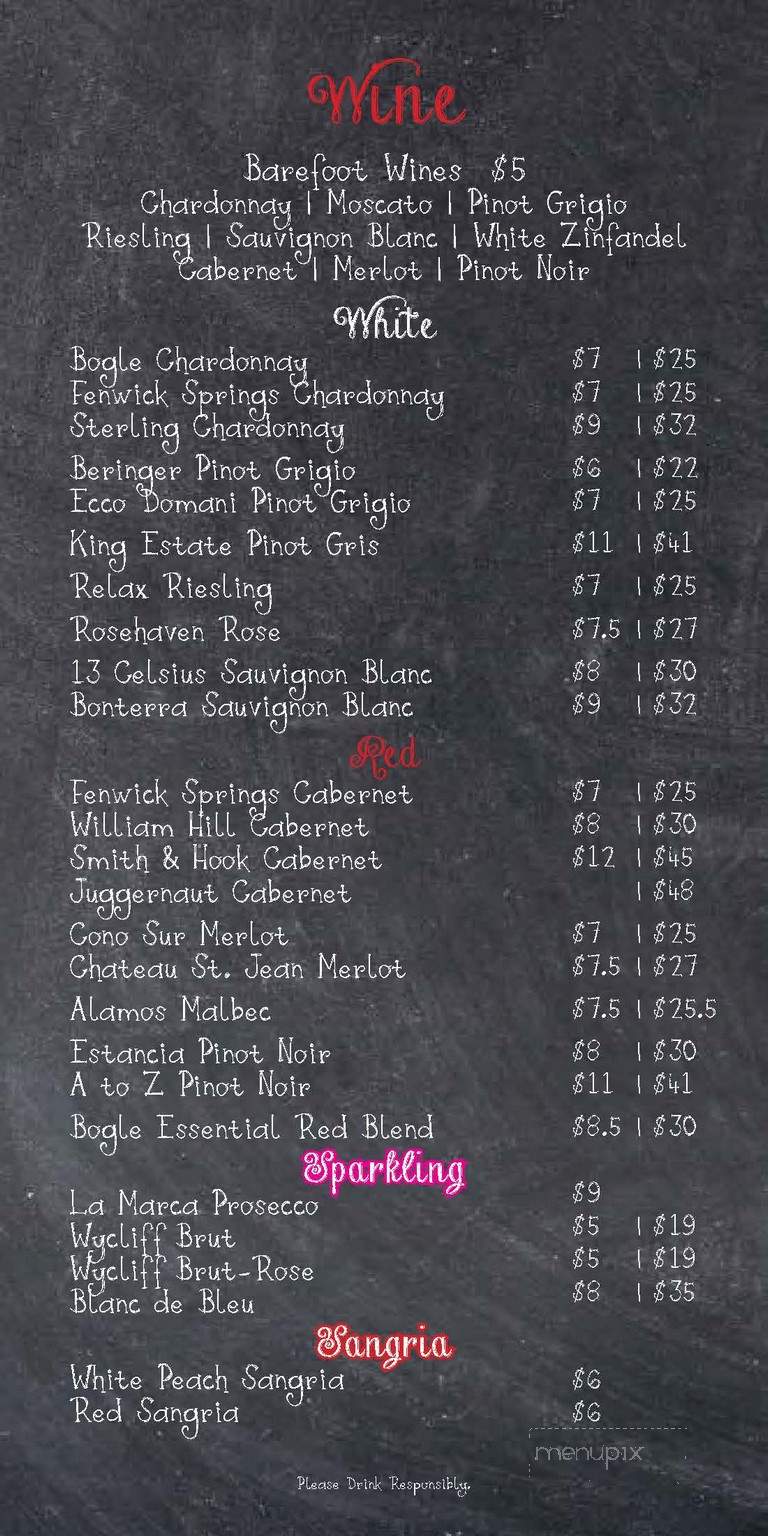 Wine
Barefoot Wines $5
Chardonnay | Moscato | Pinot Grigio
Riesling | Sauvignon Blanc | White Zinfandel
Cabernet | Merlot | Pinot Noir
White
Bogle Chardonnay $7 | $25
Fenwick Springs Chardonnay $7 | $25
Sterling Chardonnay $9 | $32
Beringer Pinot Grigio $6 | $22
Ecco Domani Pinot Grigio $7 | $25
King Estate Pinot Gris $11 | $41
Relax Riesling $7 | $25
Rosehaven Rose $7.5 | $27
13 Celsius Sauvignon Blanc $8 | $30
Bonterra Sauvignon Blanc $9 | $32
Red
Fenwick Springs Cabernet $7 | $25
William Hill Cabernet $8 | $30
Smith & Hook Cabernet $12 | $45
Juggernaut Cabernet | $48
Cono Sur Merlot $7 | $25
Chateau St. Jean Merlot $7.5 | $27
Alamos Malbec $7.5 | $25.5
Estancia Pinot Noir $8 | $30
A to Z Pinot Noir $11 | $41
Bogle Essential Red Blend $8.5 | $30
Sparkling
La Marca Prosecco $9
Wycliff Brut $5 | $19
Wycliff Brut-Rose $5 | $19
Blanc de Bleu $8 | $35
Sangria
White Peach Sangria $6
Red Sangria $6
menupix
Please Drink Responsibly.